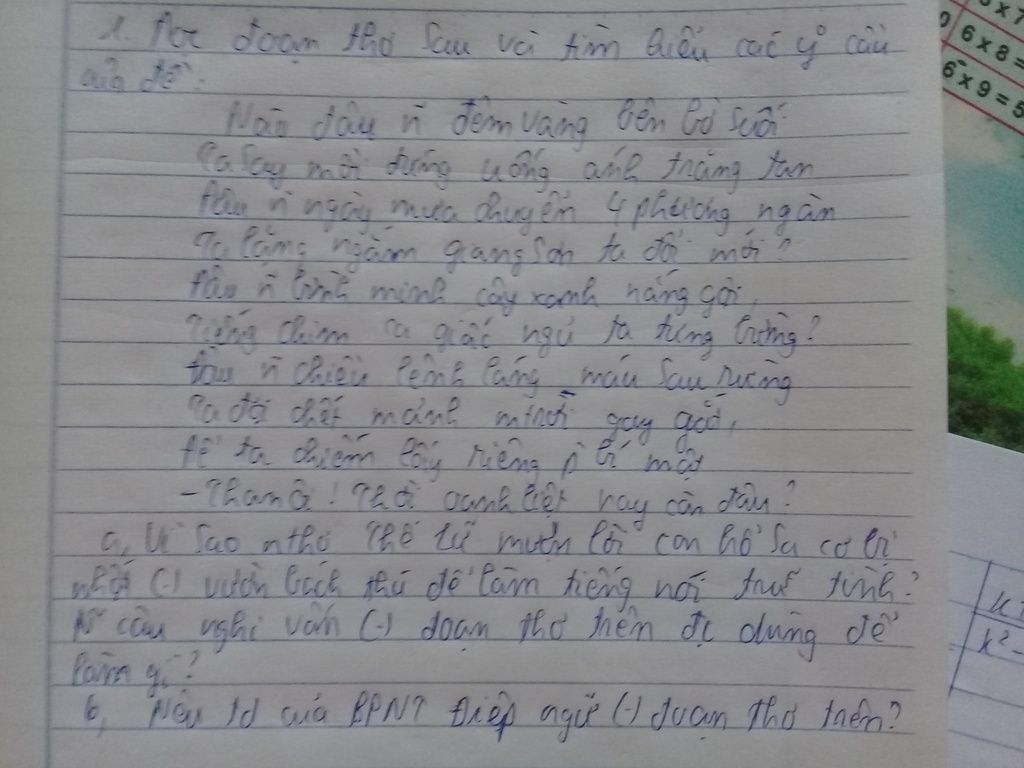 1. Đọc đoạn thơ sau và tìm hiểu các y cầu
của đề:
Nào đâu n~ đêm vàng bên bờ suối
Ta say mồi đứng uống ánh trăng tan
Đâu n~ ngày mưa chuyển 4 phương ngàn
Ta lặng ngắm giang sơn ta đổi mới?
Đâu n~ bình minh cây xanh nắng gội,
Tiếng chim ca giấc ngủ ta tưng bừng?
Đâu n~ chiều lênh láng máu sau rừng
Ta đợi chết mảnh mtrời gay gắt,
Để ta chiếm lấy riêng p bí mật
- Than ôi! Thời oanh liệt nay còn đâu?
a, Vì sao nthơ Thế Lữ mượn lời con hổ sa cơ bị
nhốt (-) vườn bách thú để làm tiếng nói trữ tình?
N~ câu nghi vấn (-) đoạn thơ trên đc dùng để
làm gì?
b, Nêu td của BPNT Điệp ngữ (-) đoạn thơ trên?
6 x 8 =
6 x 9 = 5